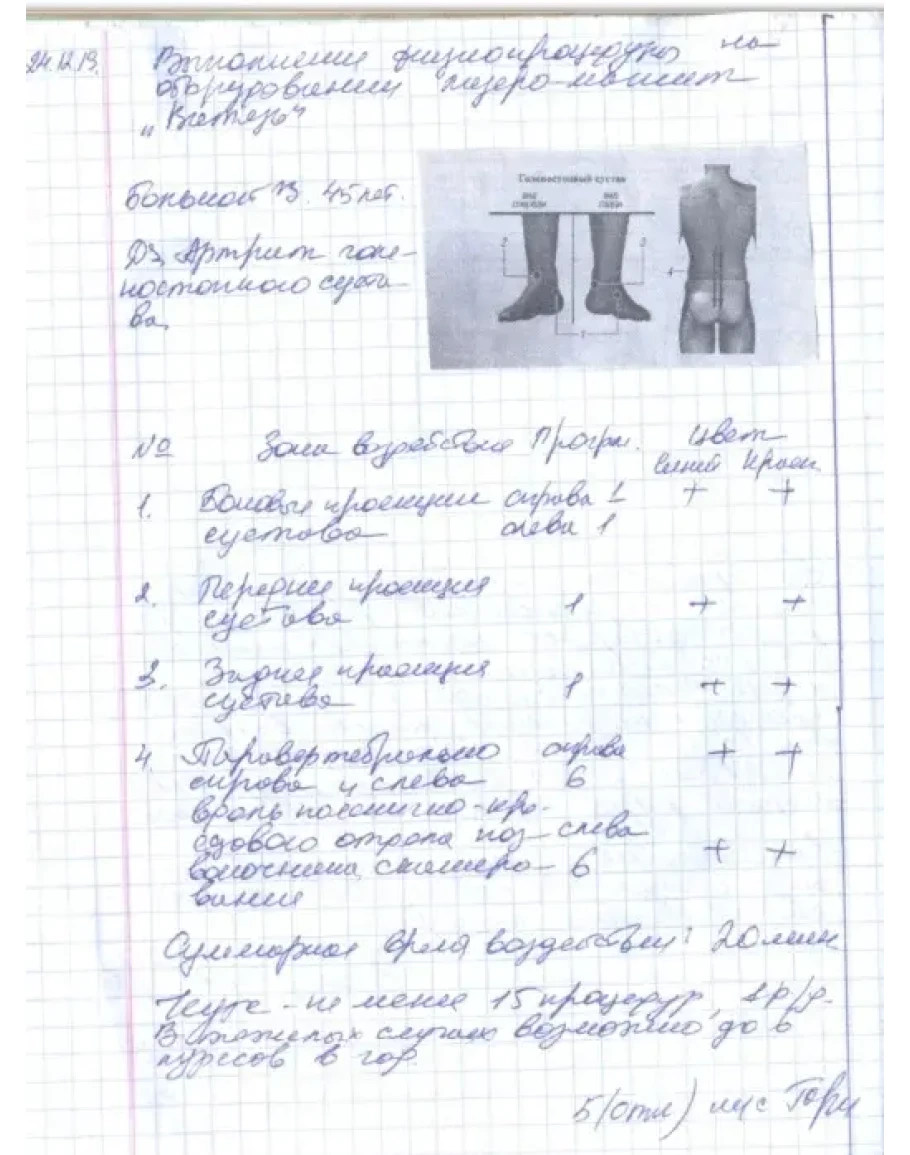 24.12.19.
Выполнение физиопроцедуры на
оборудовании лазеро-магнит
„Витязь“
Больной В. 45 лет.
Дз. Артрит голе-
ностопного суста-
ва.
Голеностопный сустав
вид спереди
вид сзади
2
3
4
1
№ Зона воздействия Прогрм. Цвет
синий красн.
1. Боковые проекции справа 1 + +
сустава слева 1
2. Передняя проекция
сустава 1 + +
3. Задняя проекция
сустава 1 + +
4. Паравертебрально справа + +
справа и слева 6
вдоль пояснично-кре-
сцового отдела поз- слева
воночника сканиро- 6 + +
вание
Суммарное время воздействия: 20 мин
Курс - не менее 15 процедур, 1р/д.
В тяжелых случаях возможно до 6
курсов в год.
5(отл) м/с